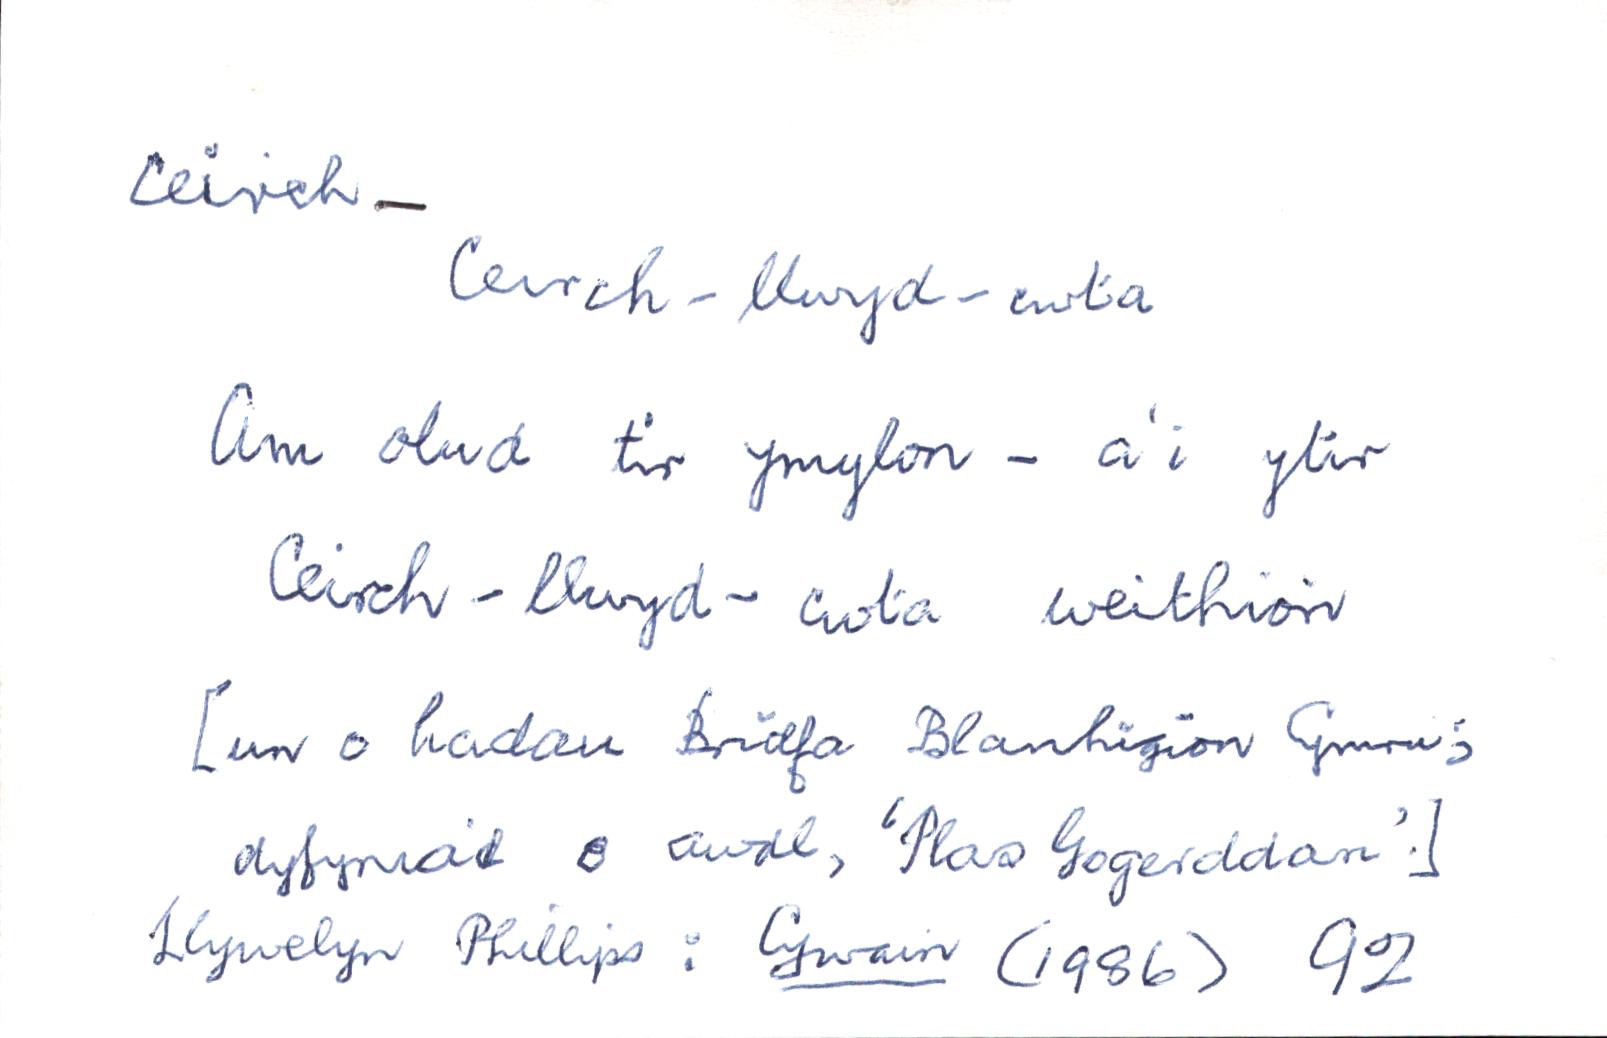 Ceirch —
Ceirch - llwyd - cwta
Am olud tir ymylon - a'i ytir
Ceirch - llwyd - cwta weithion
[un o hadau Bridfa Blanhigion Cymru;
dyfyniad o awdl, 'Plas Gogerddan'.]
Llywelyn Phillips : Cywain (1986) 92